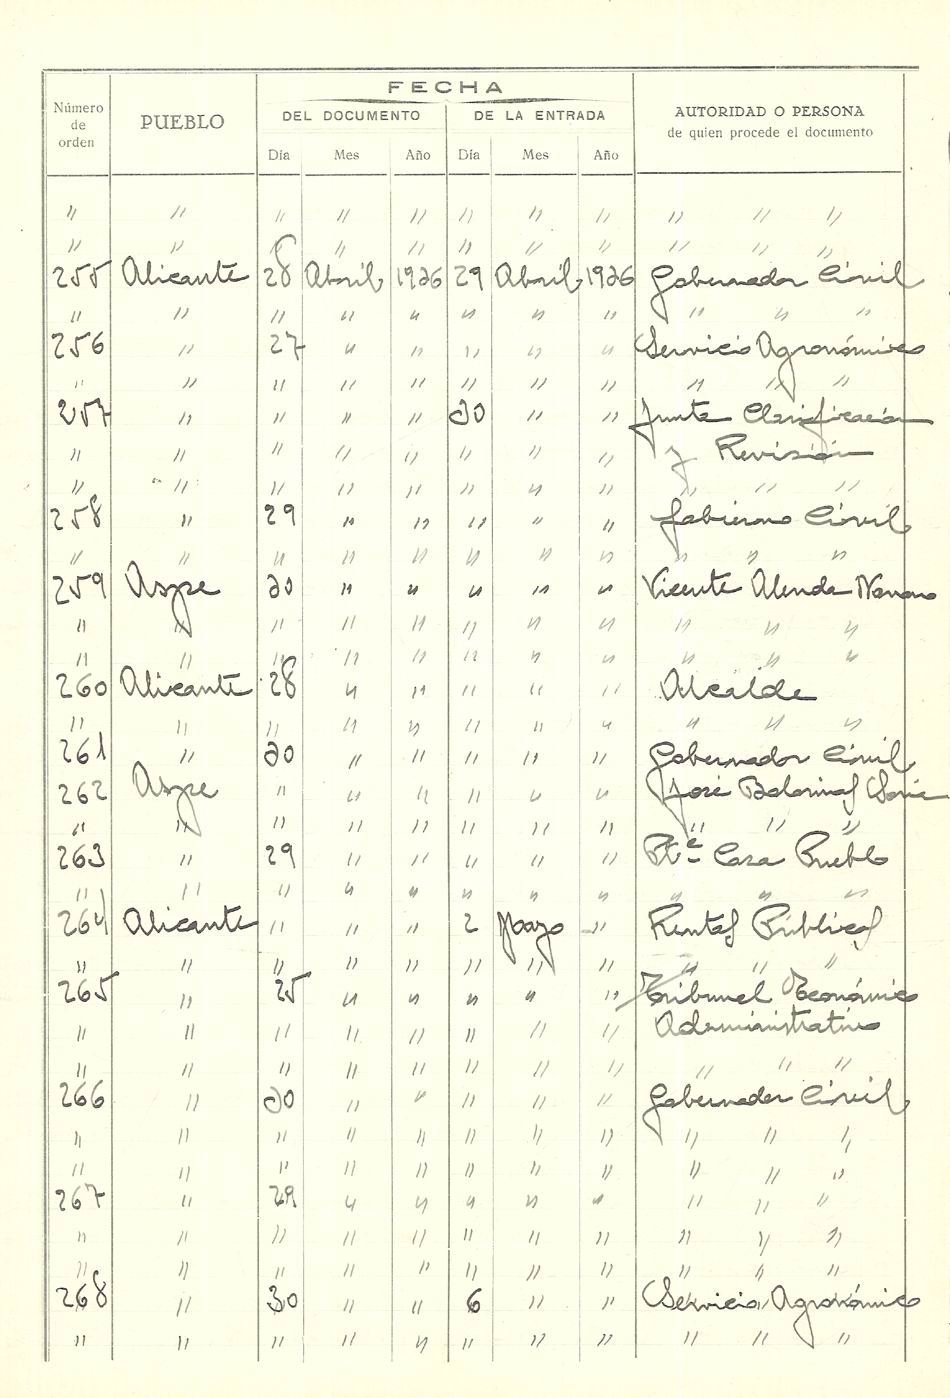 FECHA
Número de orden PUEBLO DEL DOCUMENTO DE LA ENTRADA AUTORIDAD O PERSONA de quien procede el documento
Día Mes Año Día Mes Año
" " " " " " " " " " "
" " " " " " " " " " "
255 Alicante 28 Abril 1936 29 Abril 1936 Gobernador Civil
" " " " " " " " " " "
256 " 27 " " " " " Servicio Agronómico
" " " " " " " " " " "
257 " " " " 30 " " Junta Clasificación
" " " " " " " " y Revisión
" " " " " " " " " " "
258 " 29 " " " " " Gobierno Civil
" " " " " " " " " " "
259 Aspe 30 " " " " " Vicente Alenda
" " " " " " " " " " "
" " " " " " " " " " "
260 Alicante 28 " " " " " Alcalde
" " " " " " " " " " "
261 " 30 " " " " " Gobernador Civil
262 Aspe " " " " " " José
" " " " " " " " " " "
263 " 29 " " " " " Pte Casa Pueblo
" " " " " " " " " " "
264 Alicante " " " 2 Mayo " Rentas Públicas
" " " " " " " " " " "
265 " 25 " " " " " Tribunal Económico
" " " " " " " " Administrativo
" " " " " " " " " " "
266 " 30 " " " " " Gobernador Civil
" " " " " " " " " " "
" " " " " " " " " " "
267 " 29 " " " " " " " "
" " " " " " " " " " "
" " " " " " " " " " "
268 " 30 " " 6 " " Servicio Agronómico
" " " " " " " " " " "